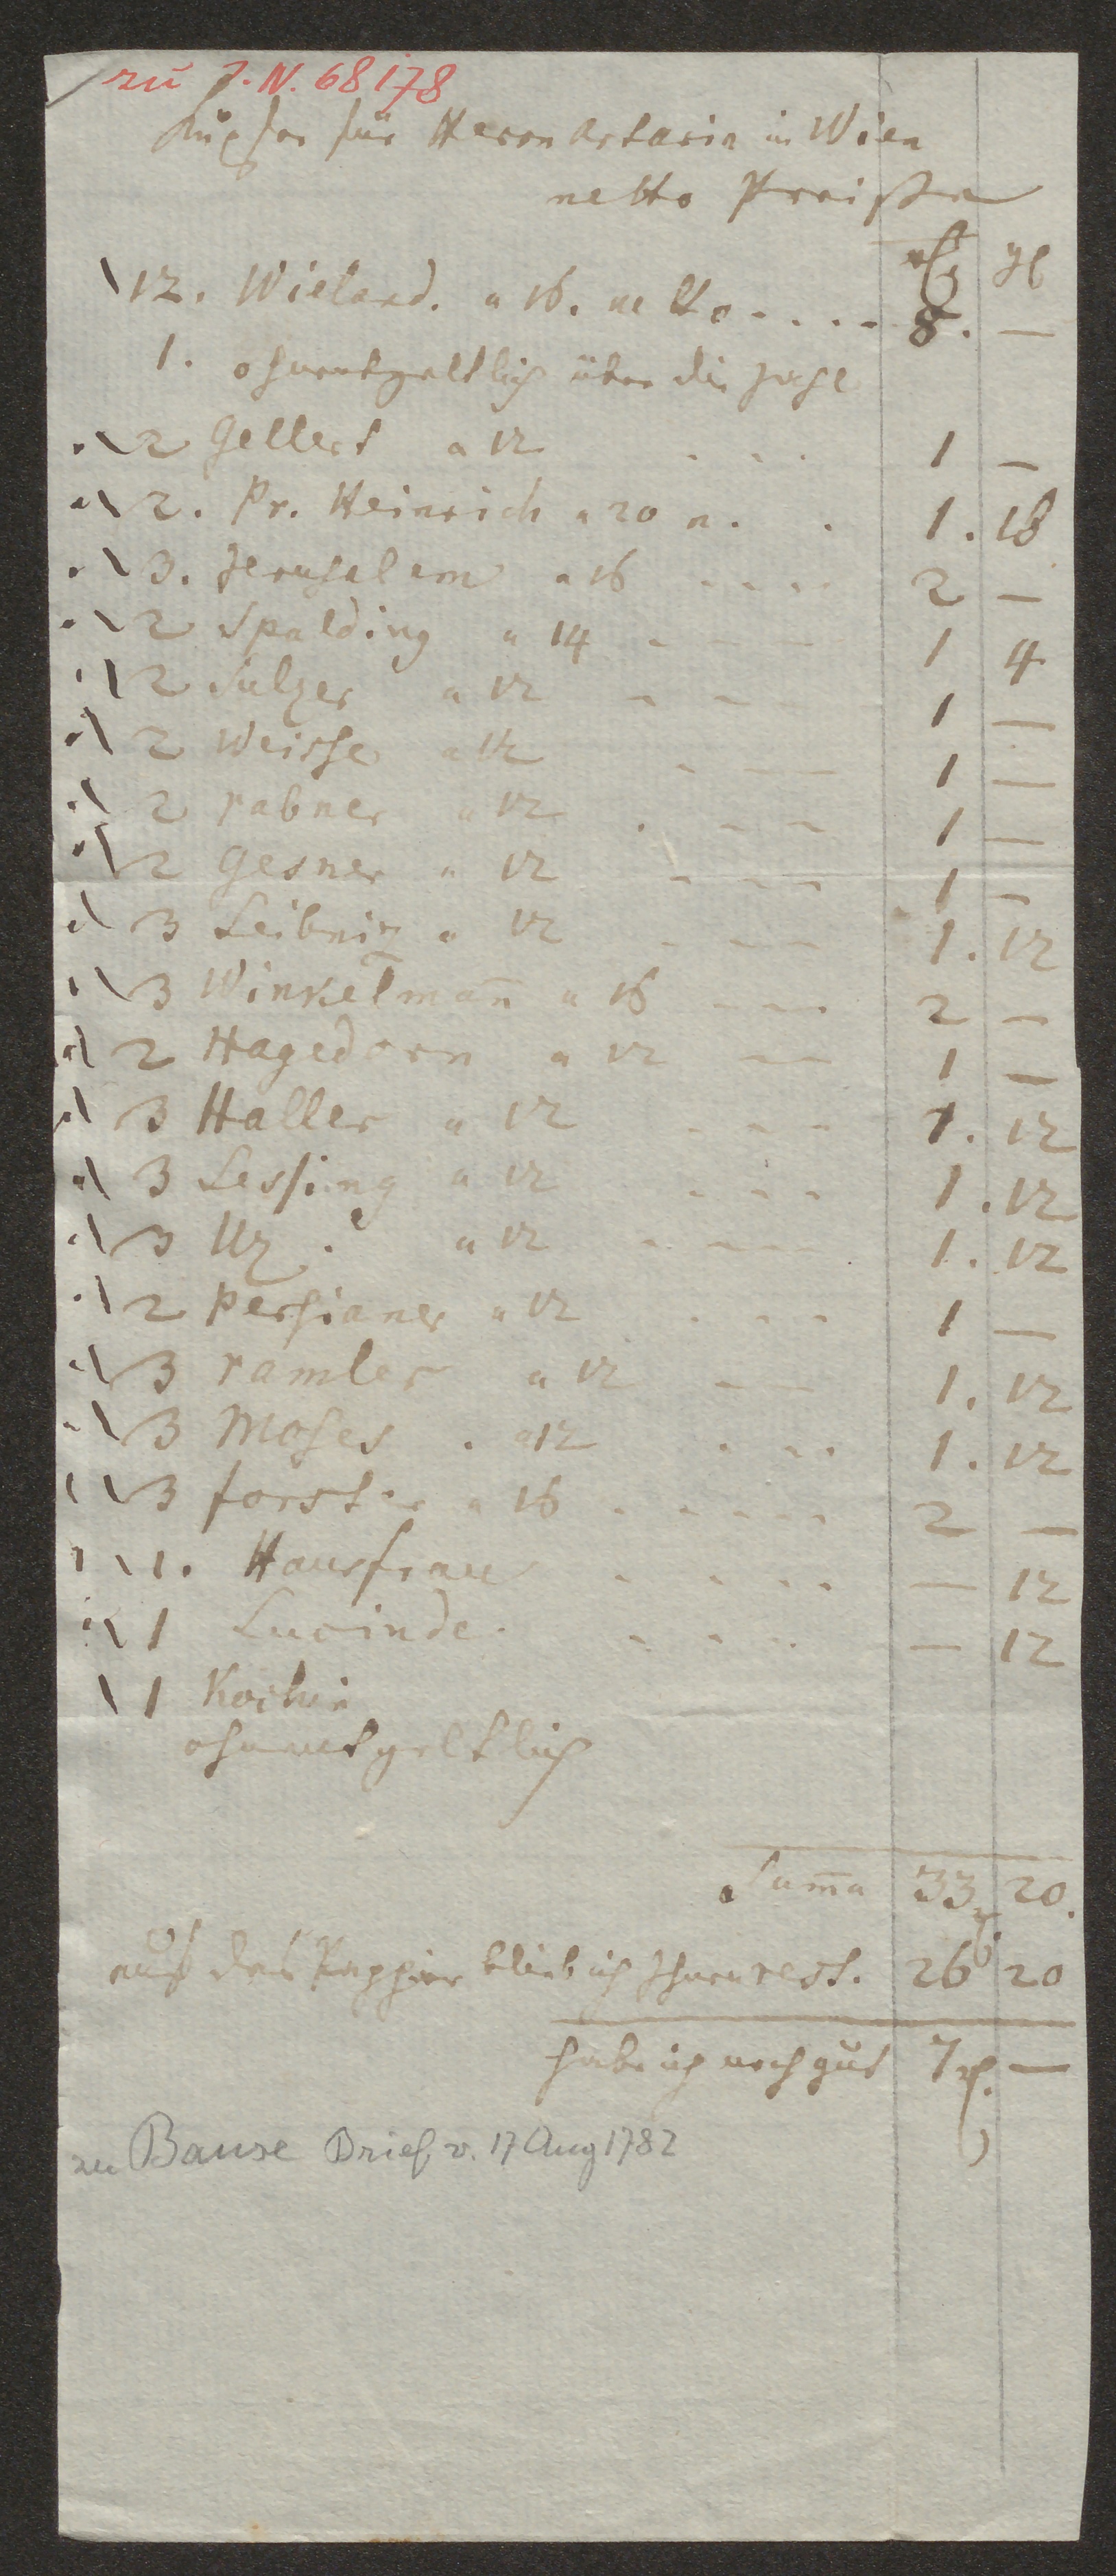 zu I. N. 68178
Kupfer für Herrn Artaria in Wien
netto Preisse
rth gl
12. Wieland. a 16. netto .... 8. —
1. ohnentgeltlich über die Zahl
2 Gellert a 12 ... 1 —
2. Pr. Heinrich a 20 n. . 1. 16
3. Jerusalem a 16 .... 2 —
2 Spalding a 14 - - - 1 4
2 Sulzer a 12 - - 1 —
2 Weisse a 12 - — 1 —
2 rabner a 12 - - - 1 —
2 Gesner a 12 - - - 1 —
3 Leibniz a 12 - - - 1. 12
3 Winkelman̄ a 16 - - - 2 —
2 Hagedorn a 12 - - 1 —
3 Haller a 12 - - - 1. 12
3 Lessing a 12 - - - 1. 12
3 Uz. a 12 - - - 1. 12
2 Persianer a 12 . - - 1 —
3 ramler a 12 - — 1. 12
3 Moses . a 12 . - - 1. 12
3 forster a 16 . - - - - 2 —
1. Hausfrau . - . . — 12
1 Lucinde. - - - . — 12
1 Kochin
ohnentgeltlich
Sum̄a 33 20.
auf das Pappier blieb ich Ihnen rest. 26 20
habe ich noch gut 7 rth. —
zu Bause Brief v. 17 Aug 1782